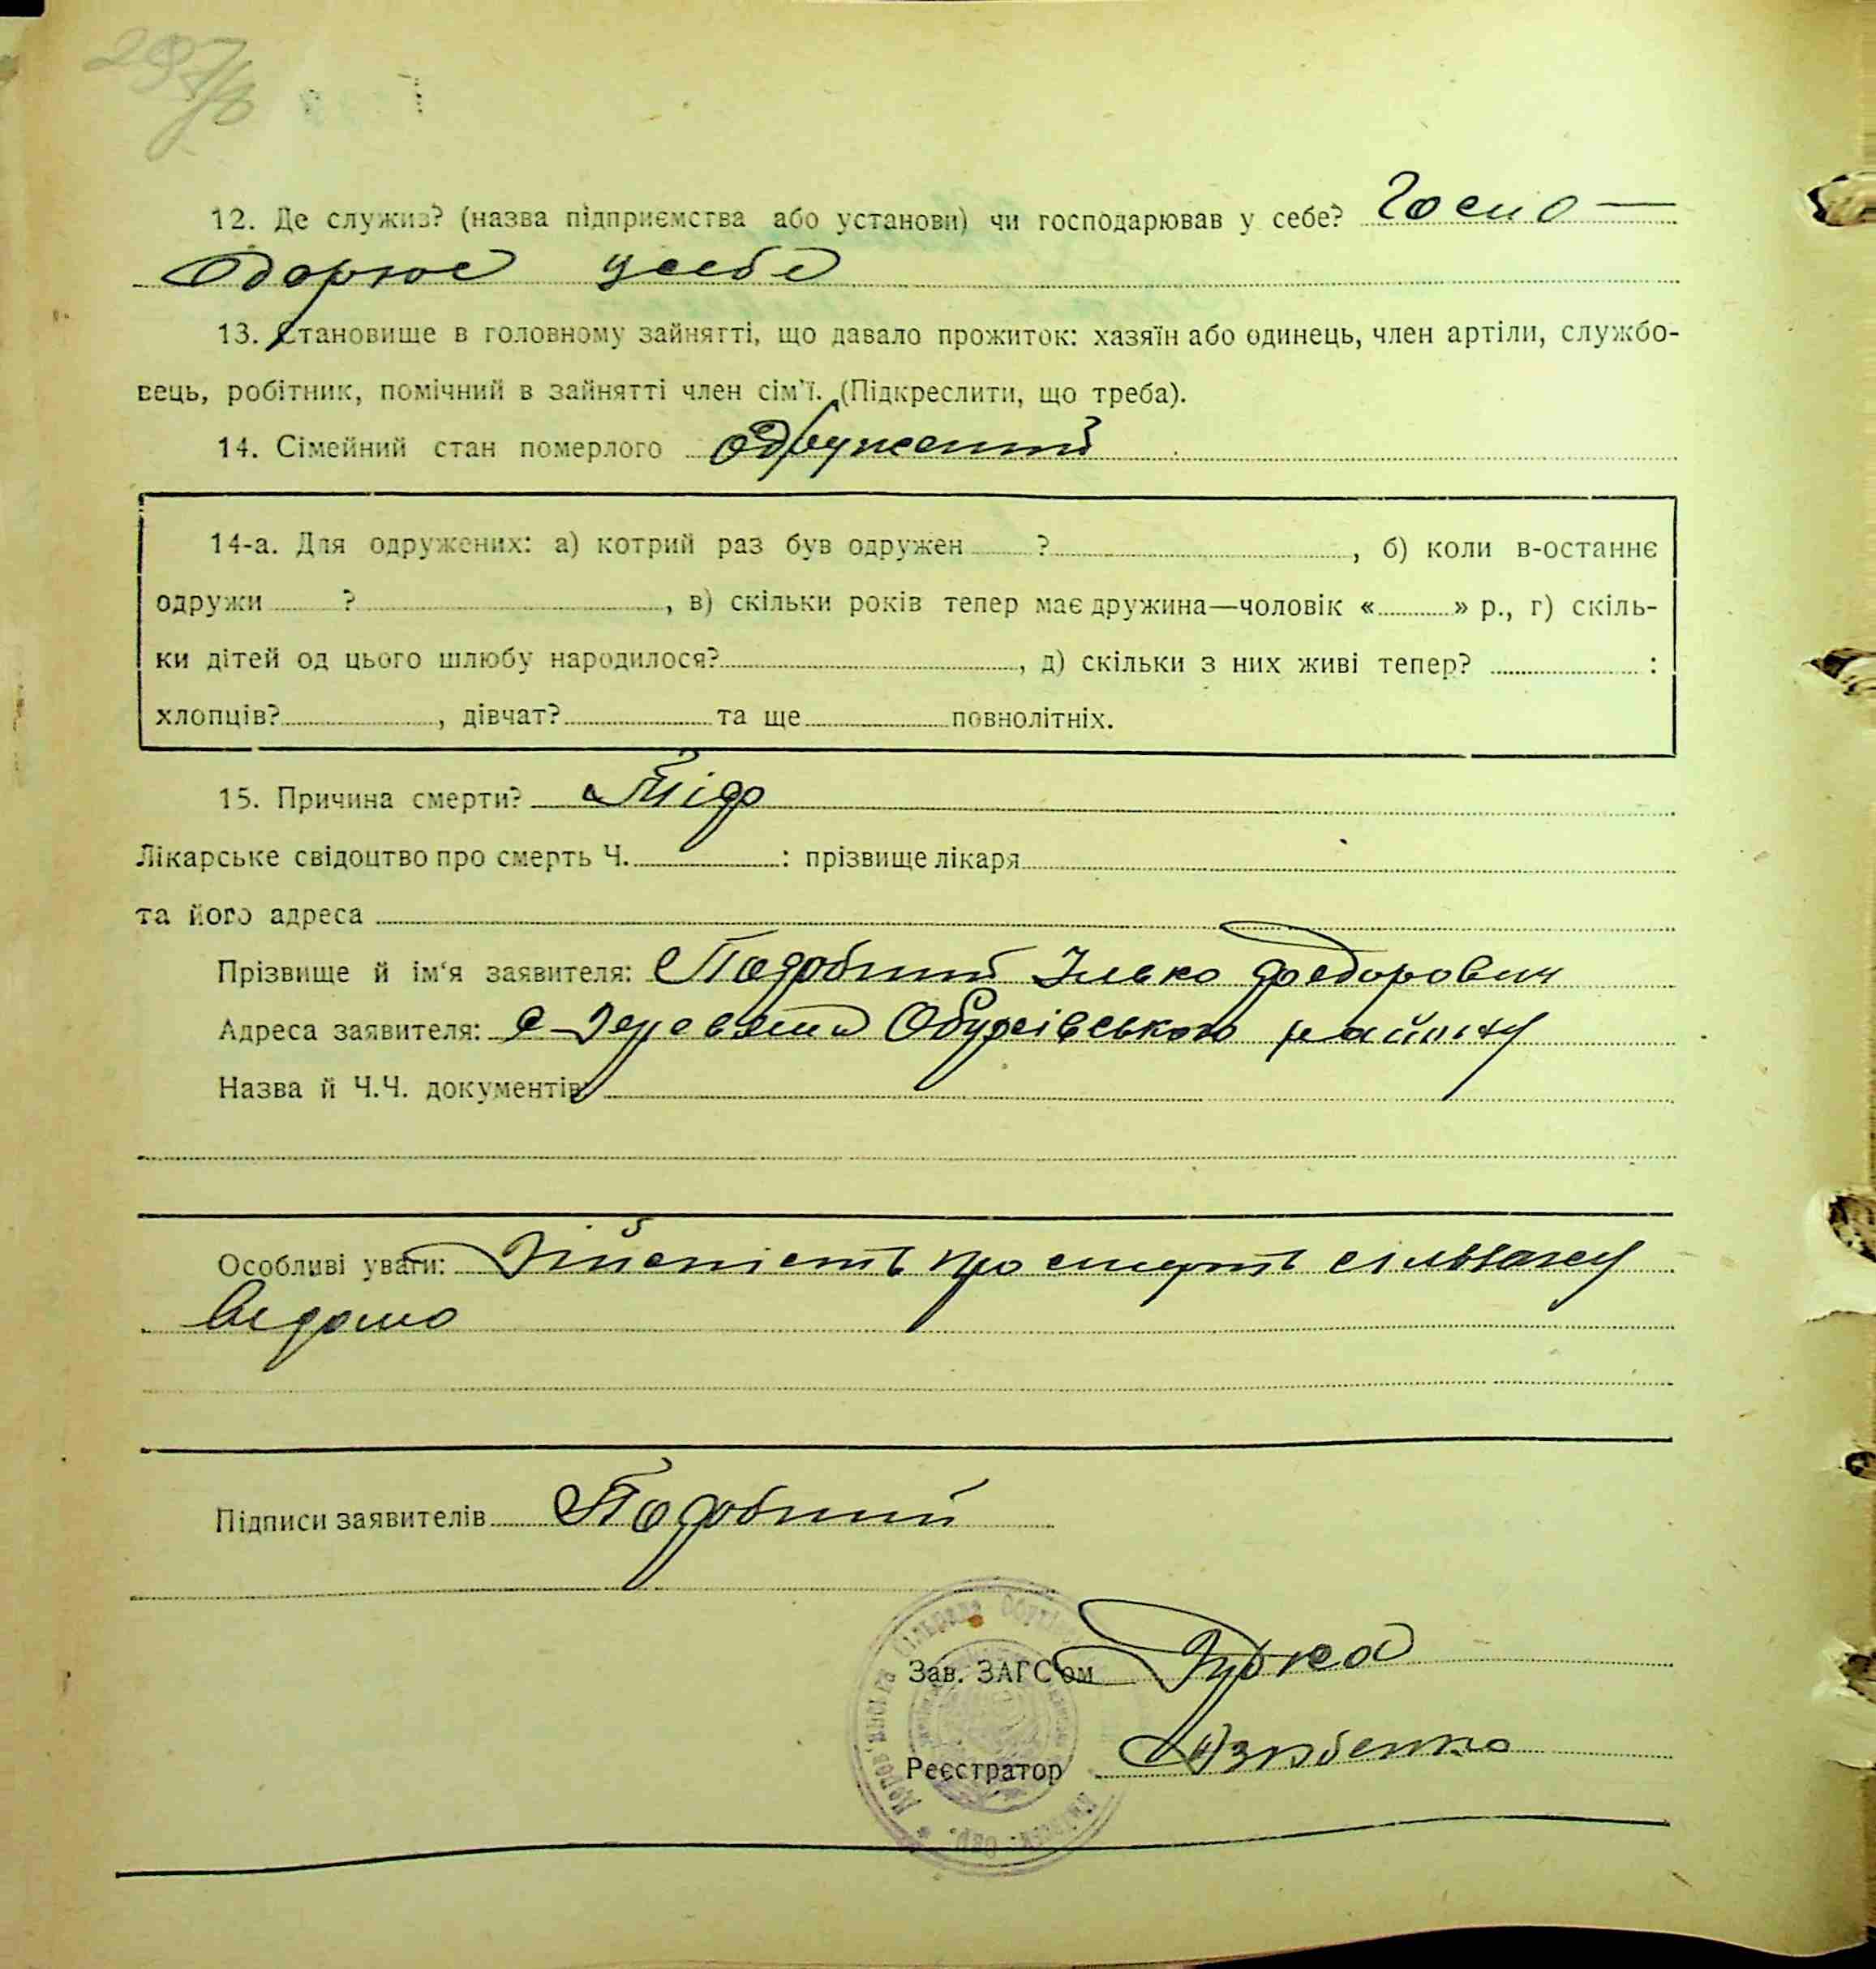 297/8
12. Де служив? (назва підприємства або установи) чи господарював у себе? Госпо—
дарює у себе
13. Становище в головному зайнятті, що давало прожиток: хазяїн або одинець, член артіли, службо-
вець, робітник, помічний в зайнятті член сім'ї. (Підкреслити, що треба).
14. Сімейний стан померлого одружений
14-а. Для одружених: а) котрий раз був одружен ? , б) коли в-останнє
одружи ? , в) скільки років тепер має дружина—чоловік « » р., г) скіль-
ки дітей од цього шлюбу народилося? , д) скільки з них живі тепер? :
хлопців? , дівчат? та ще повнолітніх.
15. Причина смерти?
Лікарське свідоцтво про смерть Ч. : прізвище лікаря
та його адреса
Прізвище й ім'я заявителя: Подобний Ілько Федорович
Адреса заявителя: с Деревяна Обухівського району
Назва й Ч.Ч. документів:
Особливі уваги: Дійсність про смерть сільраду
відомо
Підписи заявителів Подобний
Зав. ЗАГС'ом
Реєстратор